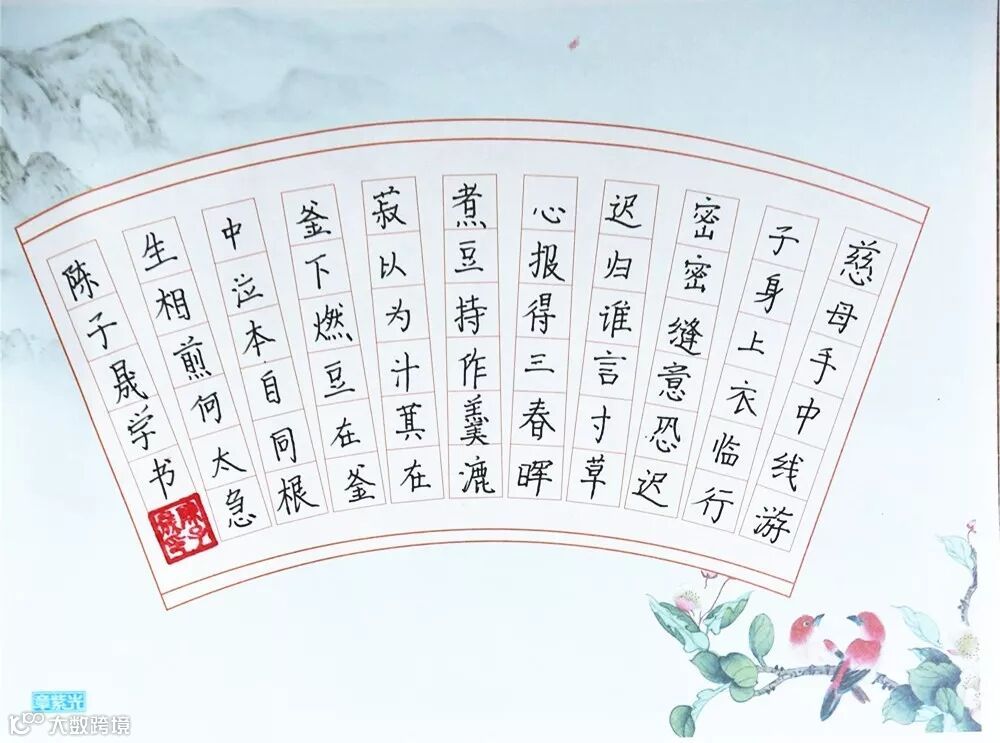 慈母手中线游
子身上衣临行
密密缝意恐迟
迟归谁言寸草
心报得三春晖
煮豆持作羹漉
菽以为汁萁在
釜下燃豆在釜
中泣本自同根
生相煎何太急
陈子晟学书
章紫光
大数跨境